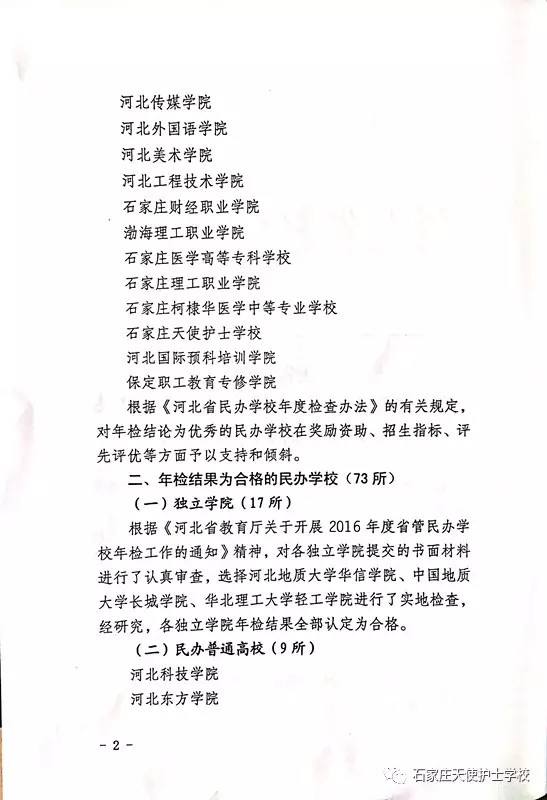 河北传媒学院
河北外国语学院
河北美术学院
河北工程技术学院
石家庄财经职业学院
渤海理工职业学院
石家庄医学高等专科学校
石家庄理工职业学院
石家庄柯棣华医学中等专业学校
石家庄天使护士学校
河北国际预科培训学院
保定职工教育专修学院
根据《河北省民办学校年度检查办法》的有关规定，
对年检结论为优秀的民办学校在奖励资助、招生指标、评
先评优等方面予以支持和倾斜。
二、年检结果为合格的民办学校（73所）
（一）独立学院（17所）
根据《河北省教育厅关于开展2016年度省管民办学
校年检工作的通知》精神，对各独立学院提交的书面材料
进行了认真审查，选择河北地质大学华信学院、中国地质
大学长城学院、华北理工大学轻工学院进行了实地检查，
经研究，各独立学院年检结果全部认定为合格。
（二）民办普通高校（9所）
河北科技学院
河北东方学院
- 2 -
石家庄天使护士学校